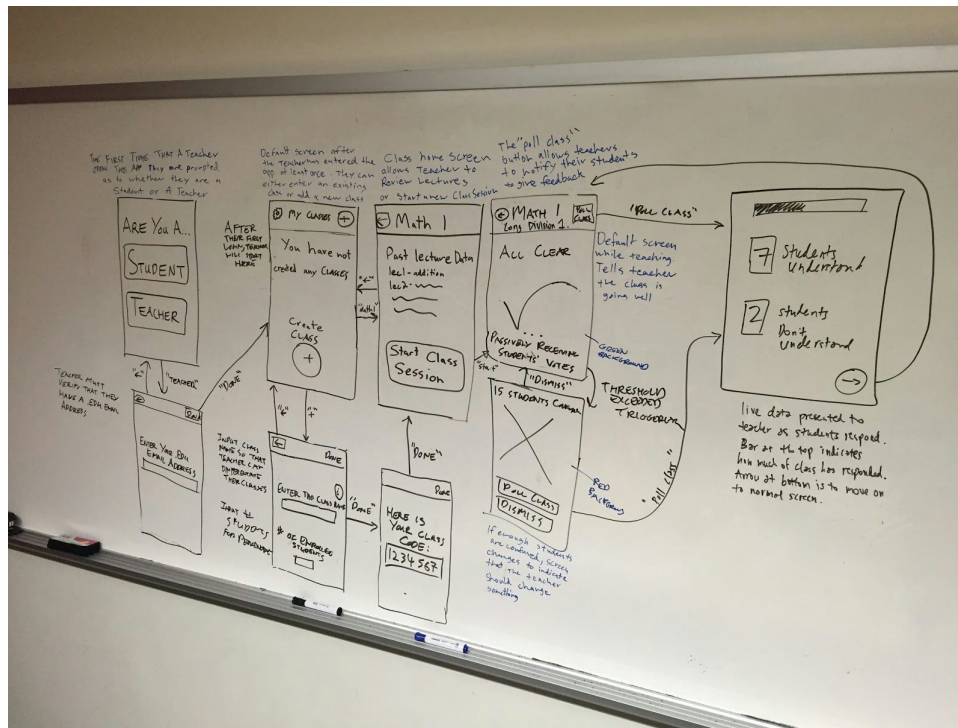 THE FIRST TIME THAT A Teacher
OPENS THE APP They are prompted
as to whether they are a
Student or A Teacher
ARE YOU A...
STUDENT
TEACHER
"←"
"TEACHER"
TEACHER MUST
VERIFY THAT THEY
HAVE A .EDU EMAIL
ADDRESS
←
ENTER YOUR .EDU
EMAIL ADDRESS
"DONE"
AFTER
THEIR FIRST
TEACHER
WILL START
HERE
Default screen after
the Teacher has entered the
app at least once. They can
either enter an existing
class or add a new class
MY CLASSES
+
You have not
created any CLASSES
Create
CLASS
+
"←"
"+"
INPUT CLASS
NAME SO THAT
TEACHER CAN
DIFFERENTIATE
THEIR CLASSES
INPUT #
STUDENTS
FOR
←
DONE
ENTER THE CLASS NAME
# OF ENROLLED
STUDENTS
"DONE"
Class home screen
allows Teacher to
Review Lectures
or start new Class Session
← Math 1
Past lecture Data
lec1-addition
lec2-
Start Class
Session
"←"
"Math 1"
"DONE"
DONE
HERE IS
YOUR CLASS
CODE:
1234567
"start"
The "poll class"
button allows teachers
to notify their students
to give feedback
← MATH 1
Long Division 1.
POLL
CLASS
ALL CLEAR
...
PASSIVELY RECEIVING
STUDENTS' VOTES
Default screen
while teaching.
Tells teacher
the class is
going well
GREEN
BACKGROUND
"DISMISS"
THRESHOLD
EXCEEDED
15 STUDENTS
POLL CLASS
DISMISS
RED
BACKGROUND
If enough students
are confused, screen
changes to indicate
that the teacher
should change
something
"POLL CLASS"
"Poll class"
7
Students
Understand
2
students
Don't
understand
→
live data presented to
teacher as students respond.
Bar at the top indicates
how much of class has responded.
Arrow at bottom is to move on
to normal screen.